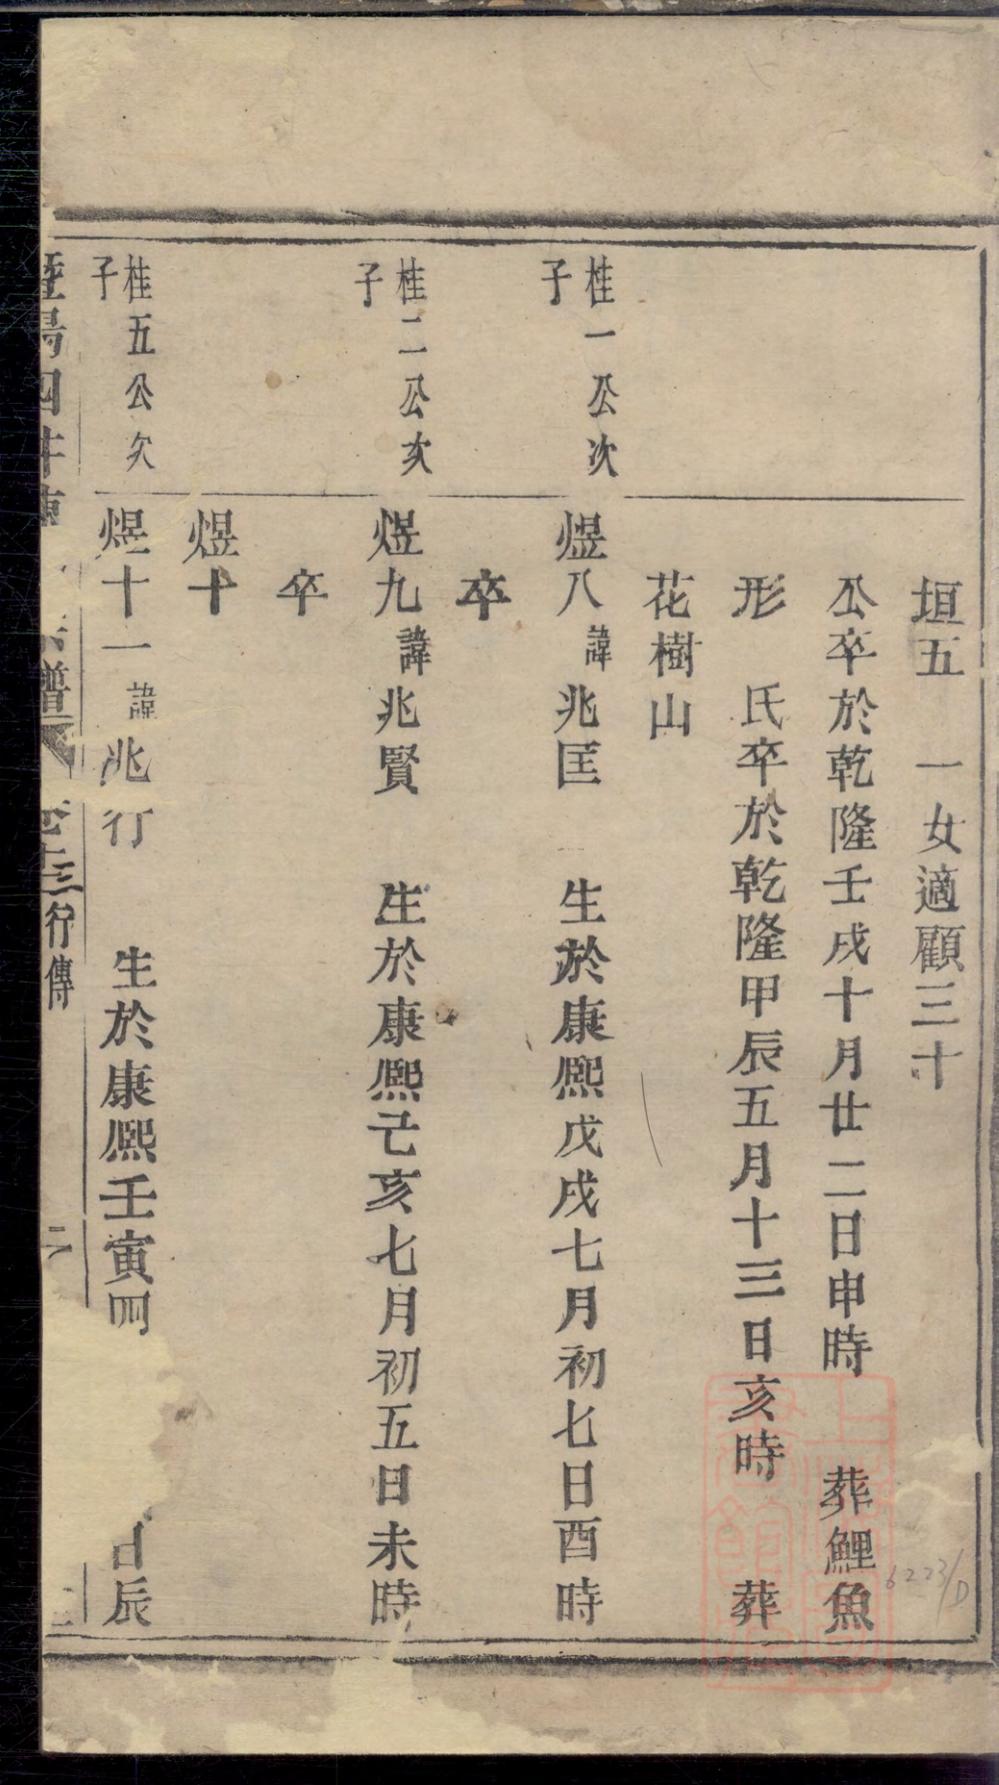 垣五　一女適顧三十
公卒於乾隆壬戌十月廿二日申時　葬鯉魚
形　氏卒於乾隆甲辰五月十三日亥時　葬
花樹山
桂一公次
子
煜八諱兆匡　生於康熙戊戌七月初七日酉時
卒
桂二公次
子
煜九諱兆賢　生於康熙己亥七月初五日未時
卒
煜十
桂五公次
子
煜十一諱兆行　生於康熙壬寅四
日辰
暨陽四
譜
十三行傳
二
6223/D